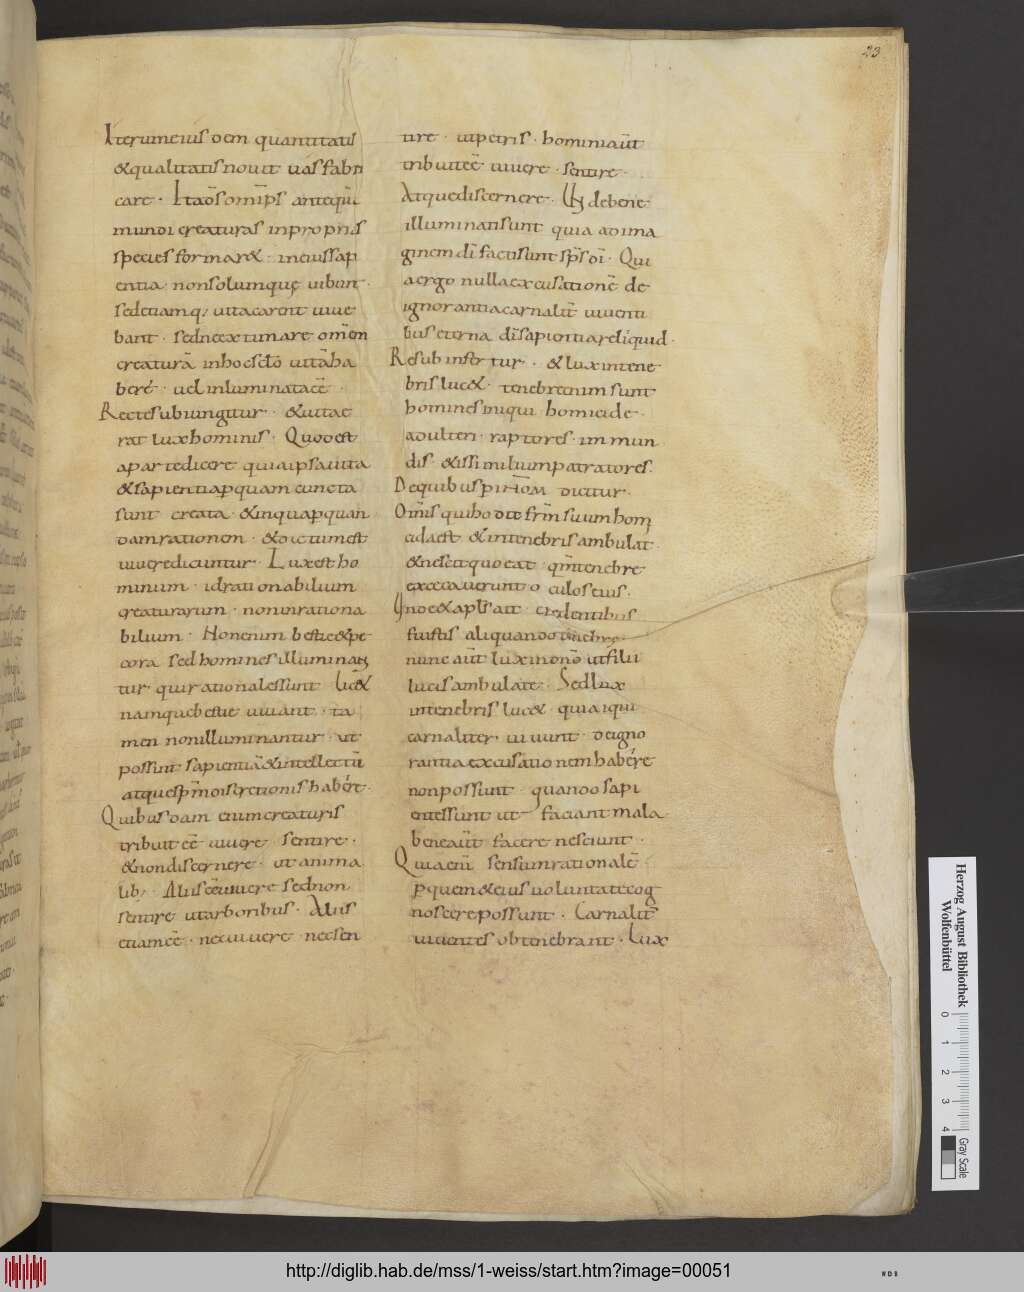 23
Iterum eius oem quantitatis
&qualitatis nouit uas fabri
care · Ita õs omīps antequā
mundi creaturas inpropriis
species formar& · ineius sapi
entia · nonsolum quę uibunt ·
sed etiam q; uita carent uiue
bant · sed nec extimare om̄em
creaturā inhoc sclo uitā ha
bere · uel inluminata eē ·
Recte subiungitur · &uita e
rat lux hominis · Quod est
aparte dicere quia ipsa uita
&sapientia p quam cuncta
sunt creata · &in qua p quan
dam rationem · &dictum est
uiuere dicuntur · Lux est ho
minum · id rationabilium
creaturarum · non inrationa
bilium · Non enim bestie & pe
cora sed homines illuminan
tur · qui rationales sunt luc&
namque bestie uiuant · ta
men non illuminantur · ut
possint sapientiā & intellectū
atque spm̄ discretionis habere ·
Quibusdam enim creaturis
tribuit eē uiuere · sentire ·
&non discernere · ut anima
lib; · Aliis eē uiuere sed non
sentire ut arboribus · Aliis
etiam eē · nec uiuere · nec sen
tire · ut petris · homini aūt
tribuit eē uiuere · sentire ·
Atque discernere · Unde bene
illuminati sunt quia ad ima
ginem dī facti sunt sps dī · Qui
a ergo nulla excusatione de
ignorantia carnalit̄ uiuenti
bus eterna dī sapientia reliquid ·
Re subinfertur · & lux in tene
bris luc& · tenebre enim sunt
homines iniqui · homicide ·
adulteri · raptores · immun
dis · & is similium patratores ·
De quibus p iohm̄ dicitur ·
Om̄is qui hodit fr̄m suum hom
cida est & in tenebris ambulat ·
&nescit quo eat · qm̄ tenebre
execauerunt oculos eius ·
Unde & aplus ait credentibus
fuistis aliquando tenebre ·
nunc aūt lux in dn̄o ut filii
lucis ambulate · Sed lux
in tenebris luc& · quia iqui
carnaliter uiuunt · de igno
rantia excusationem habere
non possunt quando sapi
entes sunt ut faciant mala
bene aūt facere nesciunt ·
Quia enī sensum rationalē ·
p quem & eius uoluntate cog
noscere possunt · Carnalit̄
uiuentes obtenebrant · Lux
Herzog August Bibliothek
Wolfenbüttel
0 1 2 3 4
Gray Scale
http://diglib.hab.de/mss/1-weiss/start.htm?image=00051